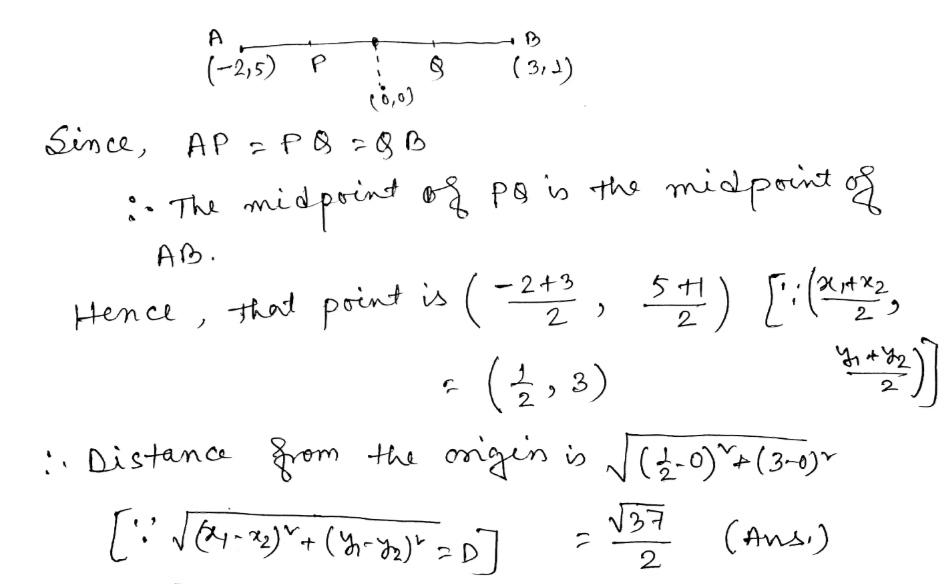 A B
(-2,5) P Q (3,1)
(0,0)
Since, AP = PQ = QB
∴ The midpoint of PQ is the midpoint of
AB.
Hence, that point is ( (-2+3)/2 , (5+1)/2 ) [∵ ( (x₁+x₂)/2 ,
(y₁+y₂)/2 )]
= (1/2, 3)
∴ Distance from the origin is √((1/2-0)² + (3-0)²)
[∵ √((x₁-x₂)² + (y₁-y₂)²) = D] = √37/2 (Ans.)